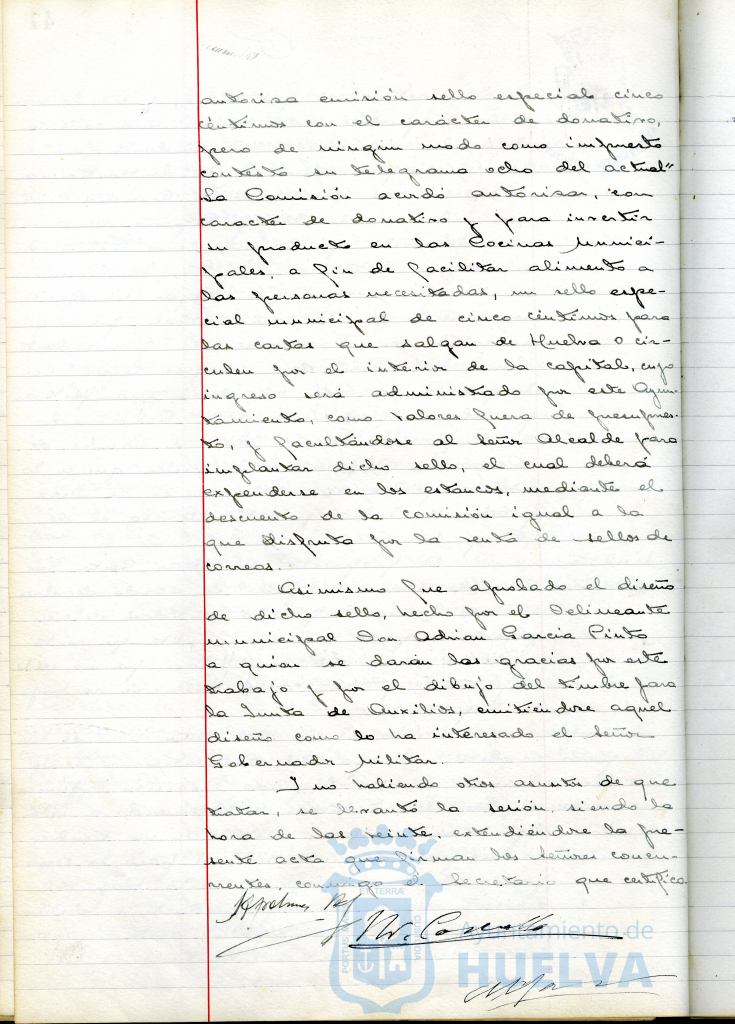 autorisa emisión sello especial cinco
céntimos con el carácter de donativo,
pero de ningun modo como impuesto
contesto su telegrama ocho del actual"
La Comisión acordó autorisar, con
caracter de donativo y para invertir
su producto en las Cocinas Munici-
pales, a fin de facilitar alimento a
las personas necesitadas, un sello espe-
cial municipal de cinco céntimos para
las cartas que salgan de Huelva o cir-
culen por el interior de la capital, cuyo
ingreso será administrado por este Ayun-
tamiento, como valores fuera de presupues-
to, y facultándose al Señor Alcalde para
implantar dicho sello, el cual deberá
expenderse en los estancos, mediante el
descuento de la comisión igual a la
que disfruta por la venta de sellos de
correos.
Asimismo fue aprobado el diseño
de dicho sello, hecho por el Delineante
municipal Don Adrian Garcia Pinto
a quien se darán las gracias por este
trabajo y por el dibujo del timbre para
la Junta de Auxilios, emitiéndose aquel
diseño como lo ha interesado el Señor
Gobernador Militar.
Y no habiendo otros asuntos de que
tratar, se levantó la sesión, siendo la
hora de las veinte, extendiéndose la pre-
sente acta que firman los Señores concu-
rrentes, conmigo el Secretario que certifico.
Ayuntamiento de
HUELVA